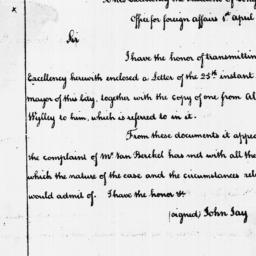 Office for foreign affairs 1st april
Sir
I have the honor of transmittin
Excellency herewith enclosed a Letter of the 25th instant
mayor of this City, together with the Copy of one from Al
Wylley to him, which is referred to in it.
From these documents it appea
the complaint of Mr. Van Berckel has met with all the
which the nature of the case and the circumstances rel
would admit of. I have the honor &c
(signed) John Jay